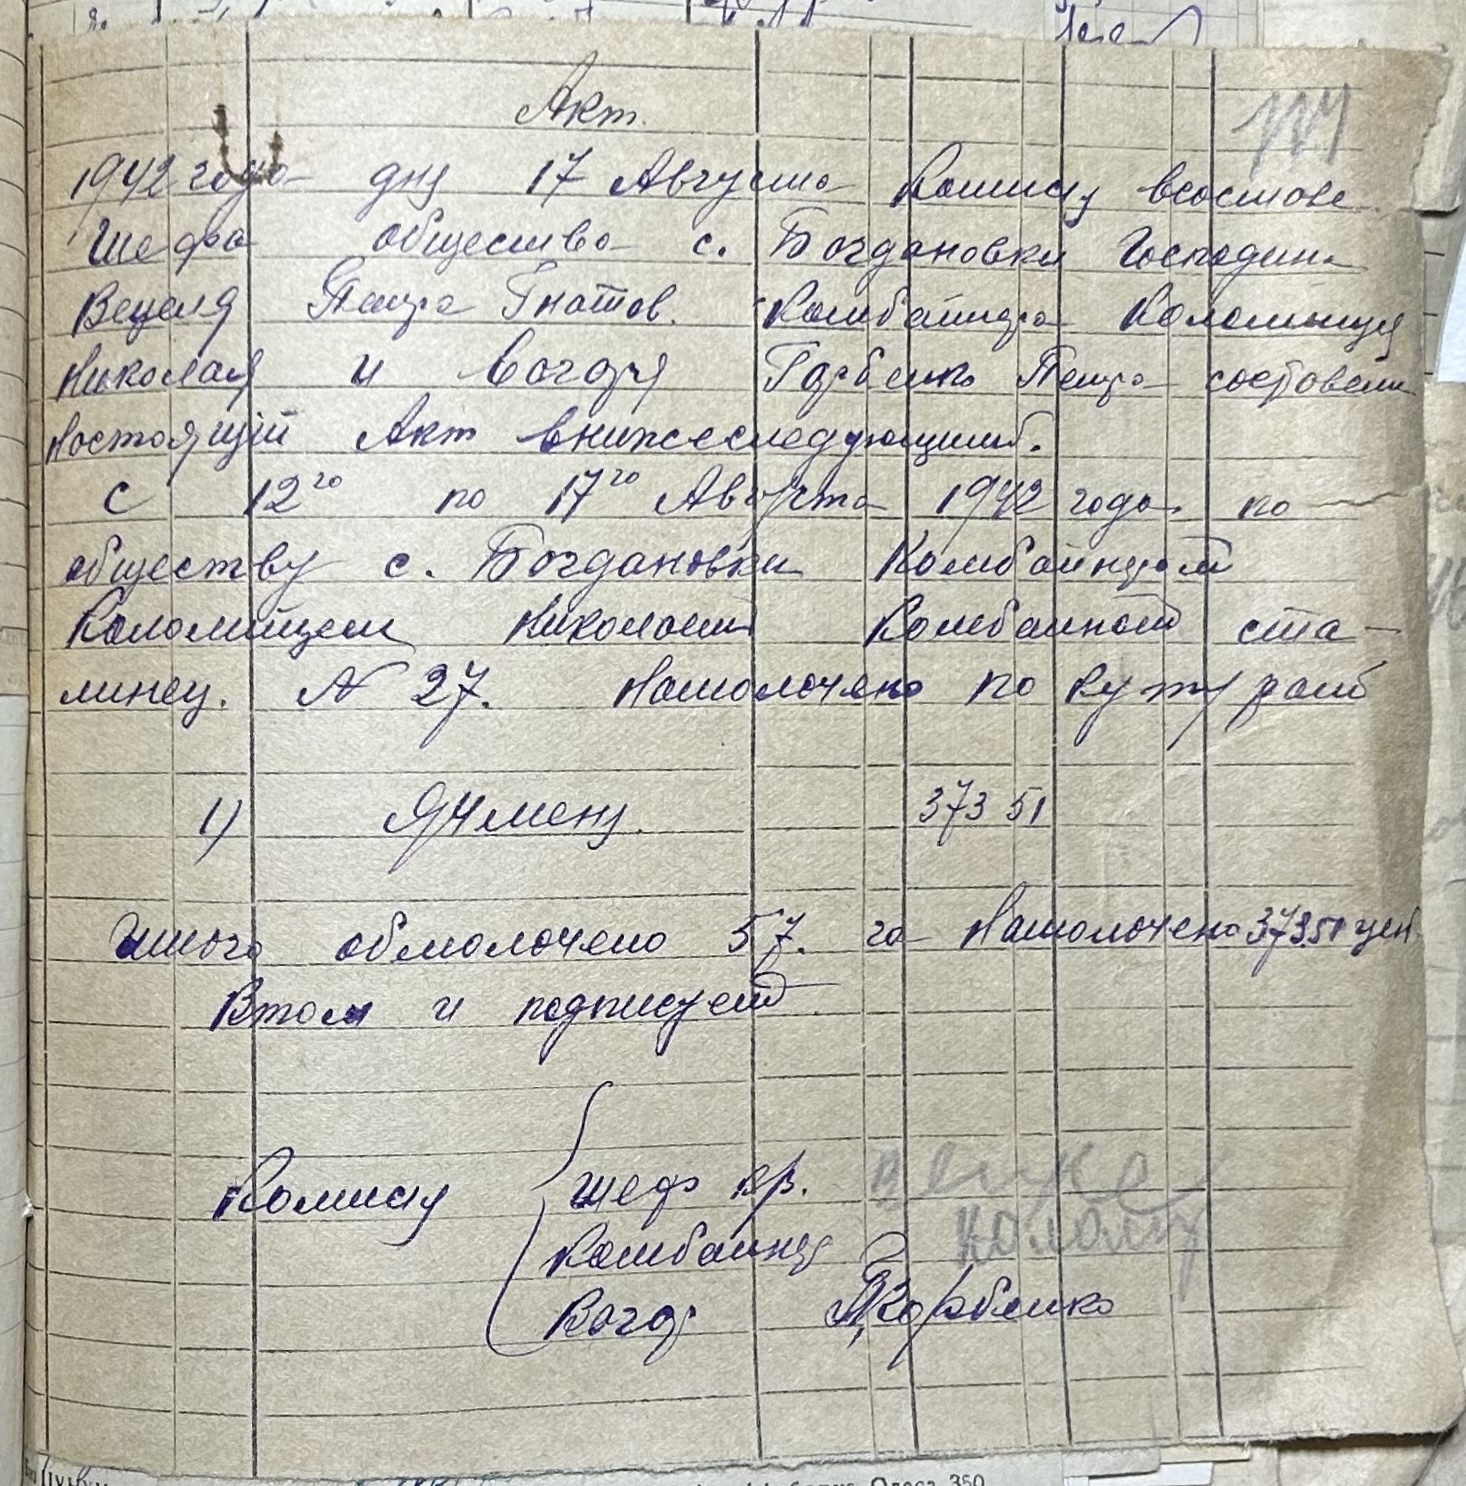 Акт.
1942 года дня 17 Августа Комисия всоставе
Шефа общества с. Богдановки Господина
Вецеля Петра Гнатов. Комбайнера Коломыйця
Николая и Вагаря Горбенко Петра составели
Настоящий Акт внижеследующим.
С 12го по 17го Августа 1942 года по
обществу с. Богдановки Комбайнером
Коломийцем Николаем Комбайном ста-
линец. N 27. Намолочено по
1) Ячменя. 373 51
Итого обмолочено 57. га Намолочено 37351 цен.
Втом и подписуем
Комисия шеф
Комбайнер
Вагар Горбенко